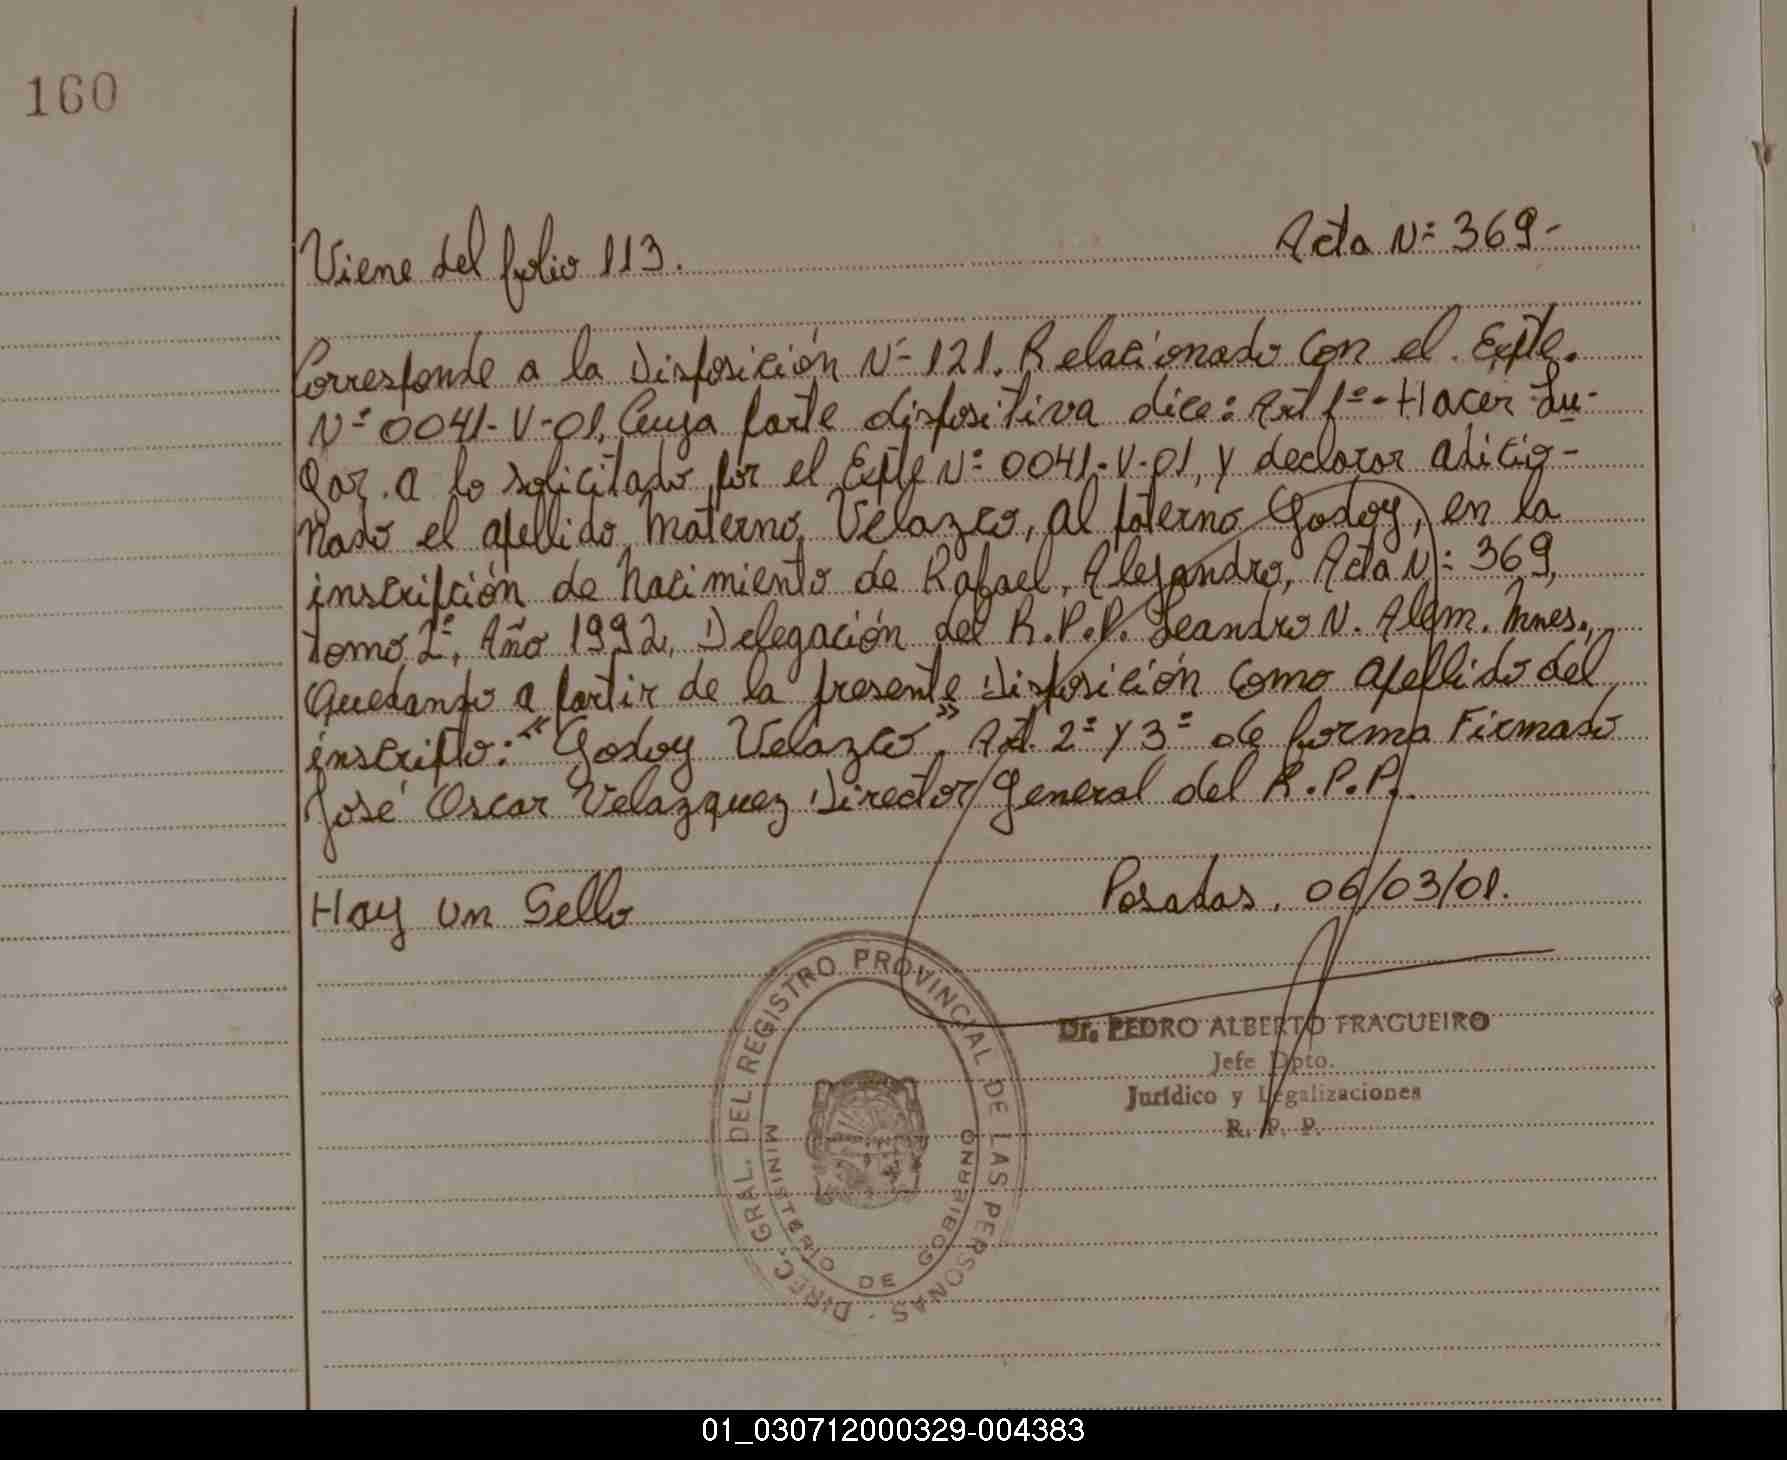 160
Viene del folio 113. Acta Nº 369-
Corresponde a la Disposición Nº 121. Relacionado con el Expte.
Nº 0041-V-01, Cuya parte dispositiva dice: Art 1º - Hacer Lu-
gar a lo solicitado por el Expte Nº 0041-V-01, y declarar adicio-
nado el apellido materno Velazco, al paterno Godoy, en la
inscripción de nacimiento de Rafael, Alejandro, Acta Nº 369,
tomo 2º, Año 1992, Delegación del R.P.P. Leandro N. Alem. Mnes.,
Quedando a partir de la presente Disposición como apellido del
inscripto: "Godoy Velazco". Art. 2º y 3º de forma Firmado
José Oscar Velazquez Director General del R.P.P.
Hay un Sello Posadas, 06/03/01.
DIREC. GRAL. DEL REGISTRO PROVINCIAL DE LAS PERSONAS
MINISTERIO DE GOBIERNO
Dr. PEDRO ALBERTO FRAGUEIRO
Jefe Dpto.
Jurídico y Legalizaciones
R. P. P.
01_030712000329-004383